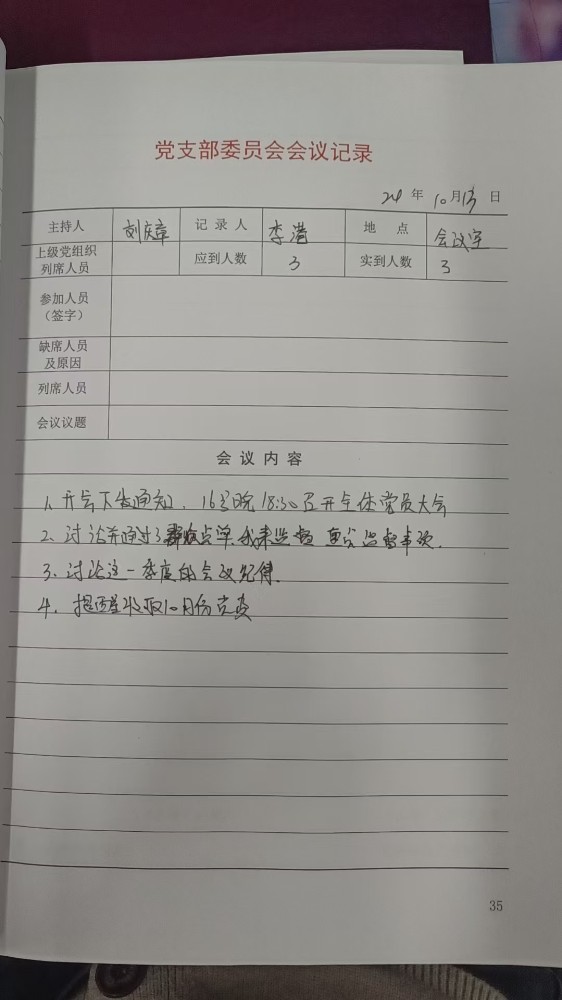 党支部委员会会议记录
24 年 10 月 15 日
主持人 刘庆章 记录人 李港 地点 会议室
上级党组织列席人员 应到人数 3 实到人数 3
参加人员(签字)
缺席人员及原因
列席人员
会议议题
会议内容
1、开会下发通知、16号晚18:30召开全体党员大会
2、讨论并通过了群众点单、我来监督 监督事项.
3、讨论这一季度的会议记得.
4、提醒收取10月份党费
35